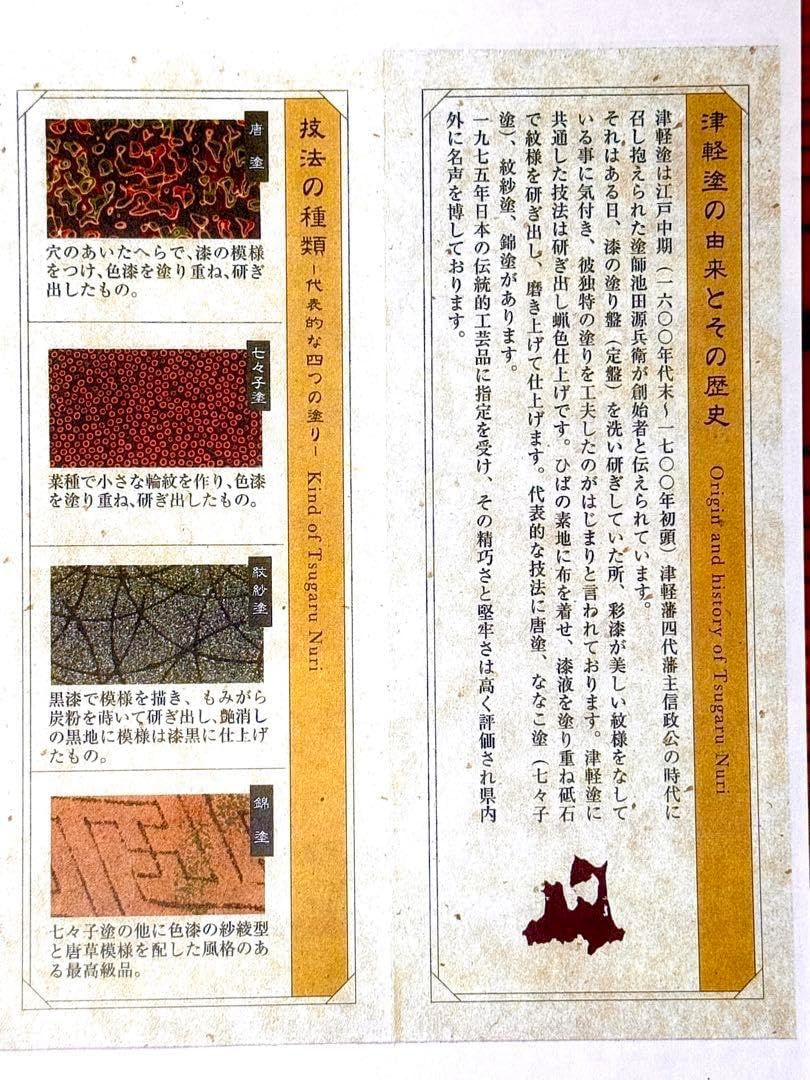 津軽塗の由来とその歴史 Origin and history of Tsugaru Nuri
津軽塗は江戸中期（一六〇〇年代末〜一七〇〇年初頭）津軽藩四代藩主信政公の時代に
召し抱えられた塗師池田源兵衛が創始者と伝えられています。
それはある日、漆の塗り盤（定盤）を洗い研ぎしていた所、彩漆が美しい紋様をなして
いる事に気付き、彼独特の塗りを工夫したのがはじまりと言われております。津軽塗に
共通した技法は研ぎ出し蝋色仕上げです。ひばの素地に布を着せ、漆液を塗り重ね砥石
で紋様を研ぎ出し、磨き上げて仕上げます。代表的な技法に唐塗、ななこ塗（七々子
塗）、紋紗塗、錦塗があります。
一九七五年日本の伝統的工芸品に指定を受け、その精巧さと堅牢さは高く評価され県内
外に名声を博しております。
技法の種類 −代表的な四つの塗り− Kind of Tsugaru Nuri
唐塗
穴のあいたへらで、漆の模様
をつけ、色漆を塗り重ね、研ぎ
出したもの。
七々子塗
菜種で小さな輪紋を作り、色漆
を塗り重ね、研ぎ出したもの。
紋紗塗
黒漆で模様を描き、もみがら
炭粉を蒔いて研ぎ出し、艶消し
の黒地に模様は漆黒に仕上げ
たもの。
錦塗
七々子塗の他に色漆の紗綾型
と唐草模様を配した風格のあ
る最高級品。